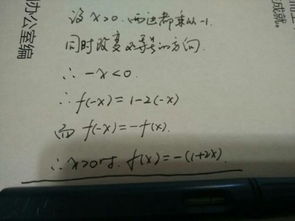 设 x>0. 两边都乘以-1.
同时改变不等号的方向.
∴ -x<0.
∴ f(-x)=1-2(-x)
而 f(-x)=-f(x).
∴ x>0时. f(x)=-(1+2x)
办公室编
成就。